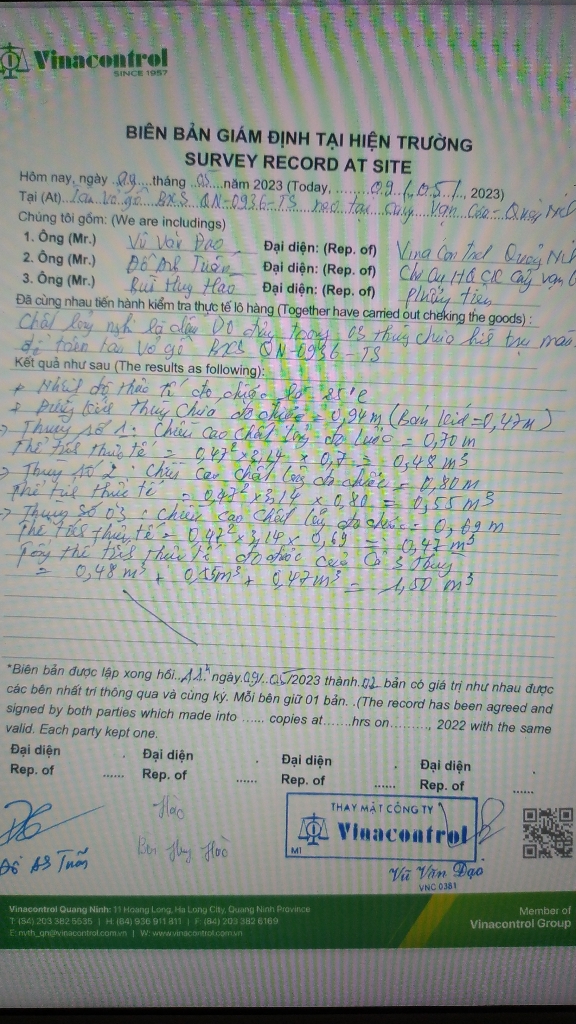 Vinacontrol
SINCE 1957
BIÊN BẢN GIÁM ĐỊNH TẠI HIỆN TRƯỜNG
SURVEY RECORD AT SITE
Hôm nay, ngày 09 tháng 05 năm 2023 (Today, ........09/05/, 2023)
Tại (At) Tàu vỏ gỗ BKS QN-0936-TS neo tại cảng Vạn Gia - Quảng Ninh
Chúng tôi gồm: (We are includings)
1. Ông (Mr.) Vũ Văn Đạo Đại diện: (Rep. of) Vinacontrol Quảng Ninh
2. Ông (Mr.) Đỗ Anh Tuấn Đại diện: (Rep. of) Chi cục HQ CK cảng Vạn G
3. Ông (Mr.) Bùi Huy Hào Đại diện: (Rep. of) phương tiện
Đã cùng nhau tiến hành kiểm tra thực tế lô hàng (Together have carried out cheking the goods) :
Chất lỏng nghi là dầu DO đựng trong 03 thùng chứa hình trụ
để trên tàu vỏ gỗ BKS QN-0936-TS
Kết quả như sau (The results as following):
+ Nhiệt độ thực tế đo được là 25°C
+ Đường kính thùng chứa đo được = 0,94m (Bán kính = 0,47m)
-> Thùng số 1: Chiều cao chất lỏng đo được = 0,70m
Thể tích thực tế = 0,47² x 3,14 x 0,7 = 0,48 m³
-> Thùng số 2: Chiều cao chất lỏng đo được = 0,80m
Thể tích thực tế = 0,47² x 3,14 x 0,80 = 0,55 m³
-> Thùng số 03: Chiều cao chất lỏng đo được = 0,69m
Thể tích thực tế = 0,47² x 3,14 x 0,69 = 0,47 m³
Tổng thể tích thực tế đo được của cả 3 thùng
= 0,48 m³ + 0,55m³ + 0,47m³ = 1,50 m³
*Biên bản được lập xong hồi..11h ngày.09/.05/2023 thành.02 bản có giá trị như nhau được
các bên nhất trí thông qua và cùng ký. Mỗi bên giữ 01 bản. .(The record has been agreed and
signed by both parties which made into ...... copies at.......hrs on........., 2022 with the same
valid. Each party kept one.
Đại diện . Đại diện . Đại diện . Đại diện .
Rep. of ...... Rep. of ...... Rep. of ...... Rep. of ......
Hào
THAY MẶT CÔNG TY
Vinacontrol
M1
Đỗ Anh Tuấn
Bùi Huy Hào
Vũ Văn Đạo
VNC 0381
Vinacontrol Quang Ninh: 11 Hoang Long, Ha Long City, Quang Ninh Province
T: (84) 203 382 5535 | H: (84) 936 911 811 | F: (84) 203 382 6169
E: nvth_qn@vinacontrol.com.vn | W: www.vinacontrol.com.vn
Member of
Vinacontrol Group